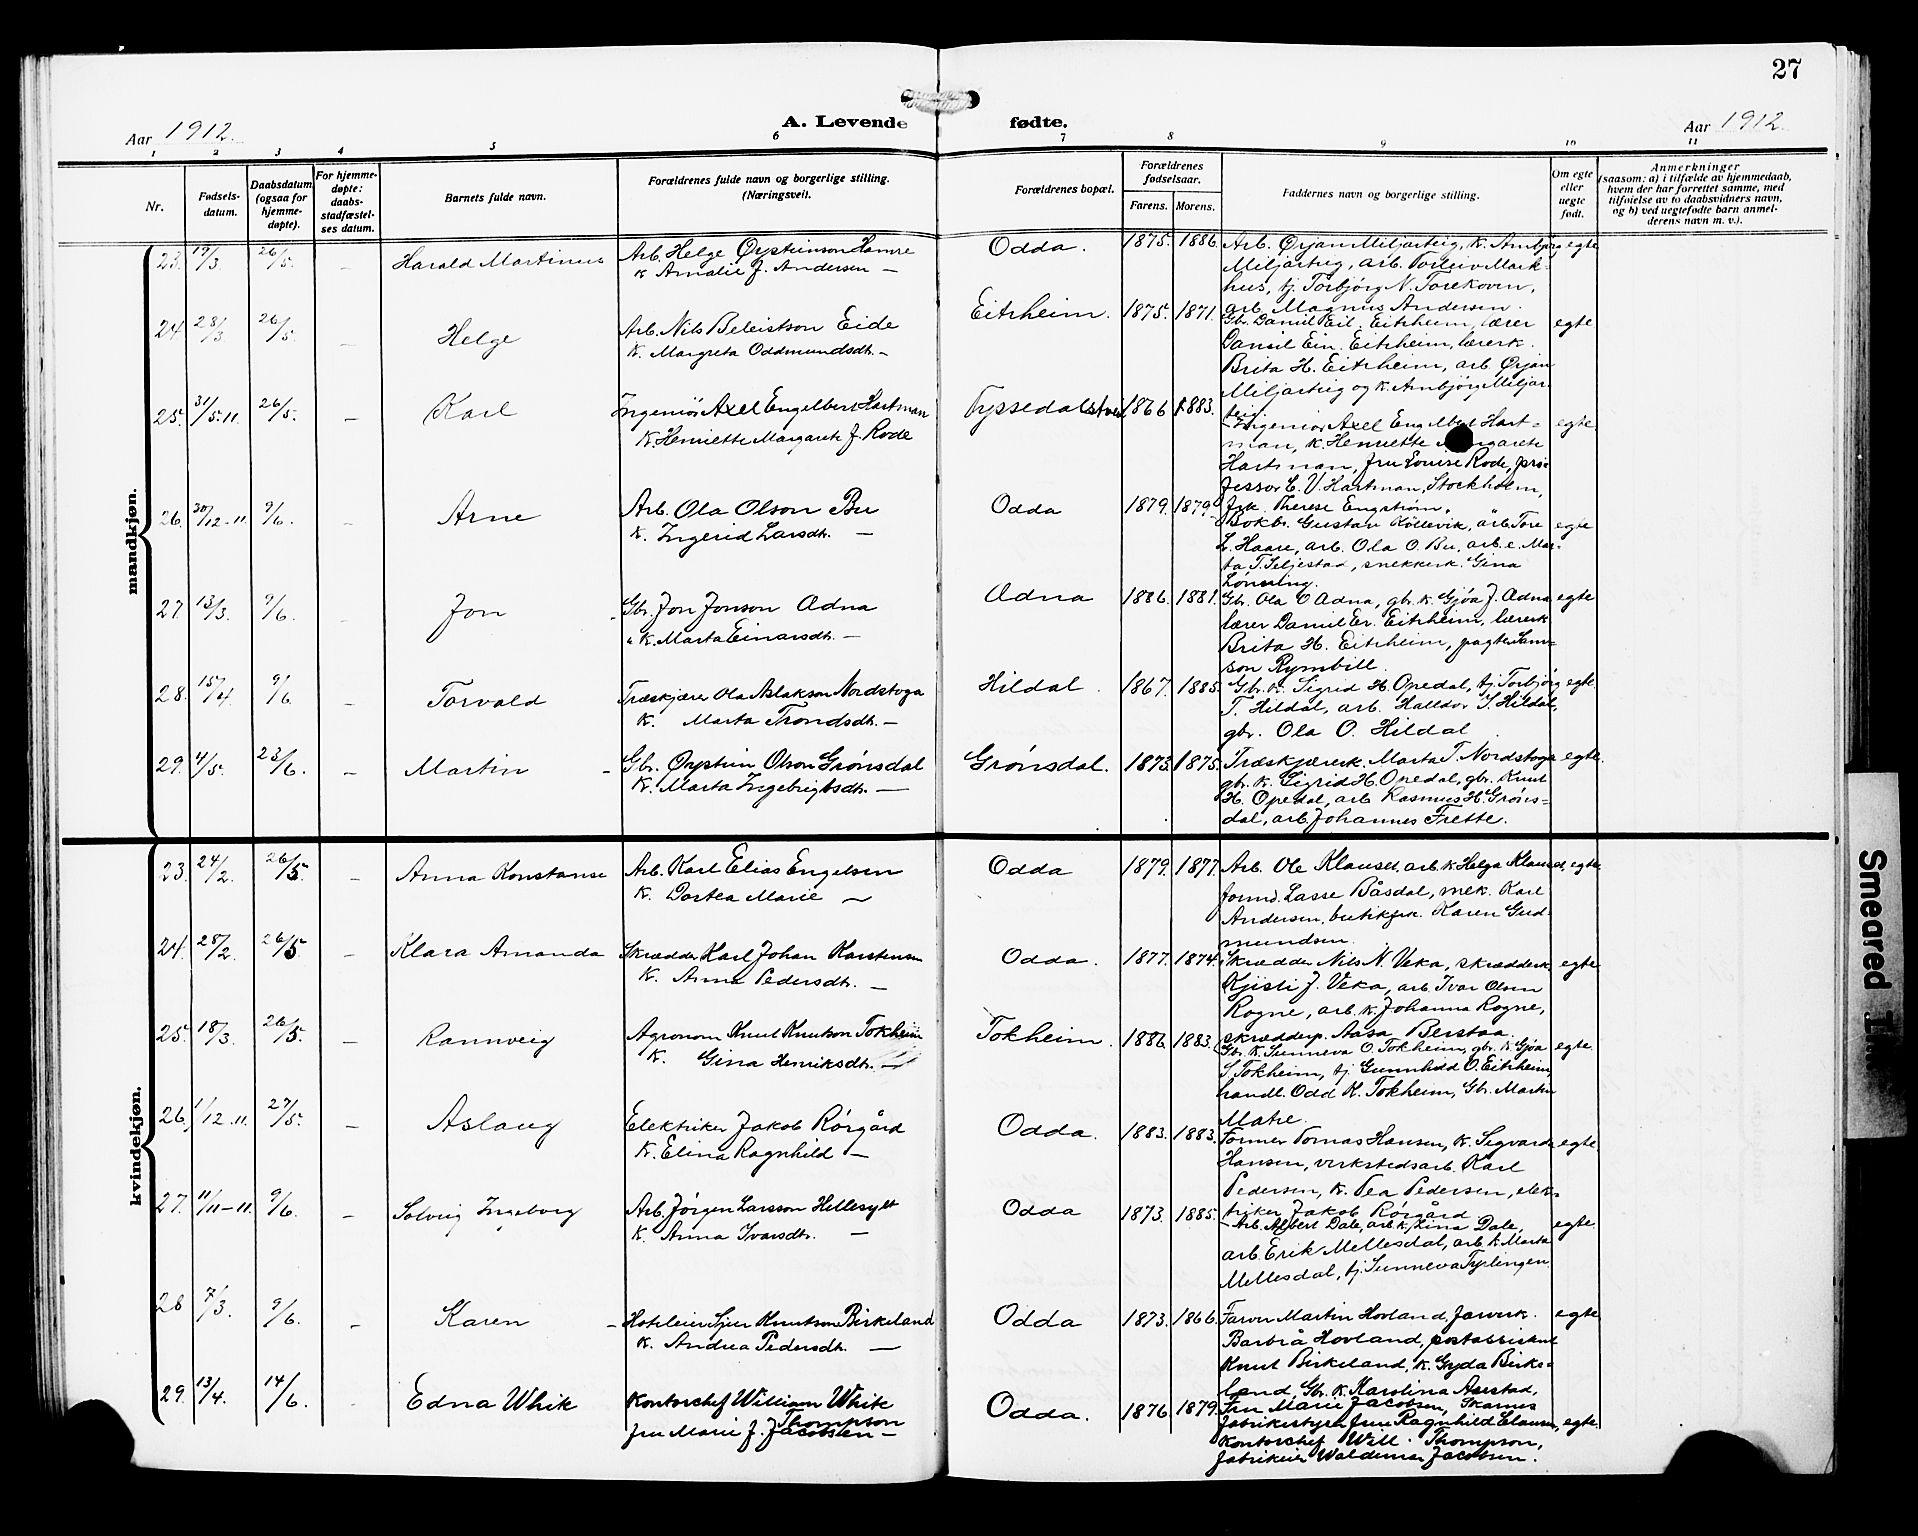 27
Aar 1912.
A. Levende fødte.
Aar 1912.
1 2 3 4 5 6 7 8 9 10 11
Nr.
Fødsels-
datum.
Daabsdatum
(ogsaa for
hjemme-
døpte).
For hjemme-
døpte:
daabs-
stadfæstel-
ses datum.
Barnets fulde navn.
Forældrenes fulde navn og borgerlige stilling.
(Næringsvei).
Forældrenes bopæl.
Forældrenes
fødselsaar.
Farens. Morens.
Faddernes navn og borgerlige stilling.
Om egte
eller
uegte
født.
Anmerkninger
(saasom: a) i tilfælde av hjemmedaab,
hvem der har forrettet samme, med
tilføielse av to daabsvidners navn,
og b) ved uegtefødte barn anmel-
derens navn m. v.).
mandkjøn.
23. 17/3. 26/5. – Harald Martinus
Arb. Helge Øysteinson Hamre
K. Amalie J. Andersen –
Odda. 1875. 1886.
Arb. Ørjan Miljarteig, K. Ambjørg
Miljarteig, arb. Torleiv Mark-
hus, tj. Torbjørg N.
arb. Magnus Andersen.
egte
24 28/3. 26/5. – Helge
Arb. Nils Beleistson Eide
K. Margreta Oddmundsdh. –
Eitrheim. 1875. 1871.
Gbr. Daniel Eil. Eitrheim, lærer
Daniel Ein. Eitrheim, lærerk.
Brita H. Eitrheim, arb. Ørjan
Miljarteig og K. Ambjørg Miljar-
teig.
egte
25. 31/5.11. 26/5. – Karl
Ingeniør Axel Engelbert Hartman
K. Henriette Margarete J. Rode
Tyssedal 1866 1883.
Ingeniør Axel Engelbert Hart-
man, K. Henriette Margarete
Hartman, fru Louise Rode, pro-
fessor C. V. Hartman, Stockholm,
frk. Therese Engstrøm.
egte
26. 30/12-11. 9/6. – Arne
Arb. Ola Olson Bu
K. Ingerid Larsdh. –
Odda 1879. 1879
Bokb. Gustav Kollevik, arb. Tore
L. Haare, arb. Ola O. Bu, arb. e. Mar-
ta T. Seljestad, snekkerk. Gina
Lønning.
egte
27. 13/3. 9/6. – Jon
Gbr. Jon Jonson Adna
K. Marta Einarsdh. –
Adna 1886. 1881.
Gbr. Ola O Adna, gbr. K. Gjøa J. Adna
lærer Daniel Er. Eitrheim, lærerk.
Brita H. Eitrheim, pagter Sam-
son
egte
28. 15/4. 9/6. – Torvald
Træskjærer Ola Aslakson Nordstoga
K. Marta Trondsdh. –
Hildal. 1867. 1885.
Gbr. K. Sigrid H. Opedal, tj. Torbjørg
T. Hildal, arb. Halldor S. Hildal,
gbr. Ola O. Hildal.
egte.
29. 4/5. 23/6. – Martin –
Gbr. Øystein Olson Grønsdal
K. Marta Ingebrigtsdh. –
Grønsdal. 1873. 1875.
Træskjærerk. Marta T. Nordstoga
gbr. K. Sigrid H. Opedal, gbr. Knut
H. Opedal, arb. Rasmus H. Grøns-
dal, arb. Johannes Frette.
egte.
kvindekjøn.
23. 24/2. 26/5. – Anna Konstanse
Arb. Karl Elias Engelsen
K. Dortea Marie –
Odda 1879. 1877.
Arb. Ole Klausen, arb. K. Helga Klausen,
formd. Lasse Båsdal, mek. Karl
Andersen, butikfrk. Karen Gud-
mundsen.
egte.
24. 28/2. 26/5. – Klara Amanda
Skrædder Karl Johan Karstensen
K. Anna Pedersdh. –
Odda. 1877. 1874.
Skrædder Nils N. Veka, skrædderk.
Kjisti J. Veka, arb. Ivar Olsen
Rogne, arb. K. Johanna Rogne,
skrædderp. Aasa Berstaa.
egte.
25. 18/3. 26/5. – Rannveig
Agronom Knut Knutson Tokheim
K. Gina Henriksdh. –
Tokheim. 1886. 1883.
Gbr. K. Sunneva O. Tokheim, gbr. K. Gjøa
S. Tokheim, tj. Gunnhild O. Eitrheim,
handl. Odd K. Tokheim, Gbr. Martin
Matre.
egte.
26. 1/12-11. 27/5. – Aslaug
Elektriker Jakob Rørgård
K. Elina Ragnhild –
Odda. 1883. 1883.
Former Tomas Hansen, K. Sigvarda
Hansen, verkstedsarb. Karl
Pedersen, K. Pea Pedersen, elek-
triker Jakob Rørgård.
egte.
27. 11/11-11. 9/6. – Solveig Ingeborg
Arb. Jørgen Larsson Hellesylt
K. Anna Ivarsdh. –
Odda 1873. 1885.
Arb. Albert Dale, arb. K. Lina Dale,
arb. Erik Mellesdal, arb. K. Marta
Mellesdal, tj. Sunneva
egte.
28 7/3. 9/6. – Karen –
Hoteleier Sjur Knutson Birkeland
K. Andrea Pedersdh. –
Odda 1873. 1866.
Farver Martin Hovland, farverk.
Barbrå Hovland,
Knut Birkeland, K. Gyda Birke-
land, Gbr. K. Karolina Aasestad,
egte
29. 13/4. 14/6. – Edna White
Kontorchef William White
Thompson
fru Marie J. Jacobsen –
Odda. 1876. 1879.
Fru Marie Jacobsen, Skarnes
fabrikestyrer fru Ragnhild Clausen,
Kontorchef Will. Thompson,
fabrikeier Waldemar Jacobsen.
egte.
Smeared